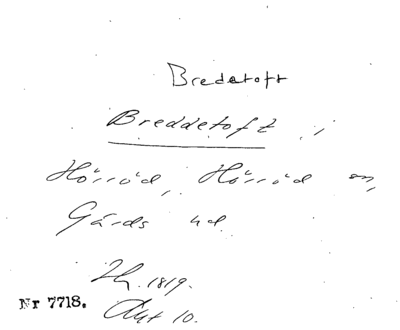 Bredetoft
Breddetoft i
Hörröd, Hörröd sn,
Gärds hd
1819.
Akt 10.
Nr 7718.